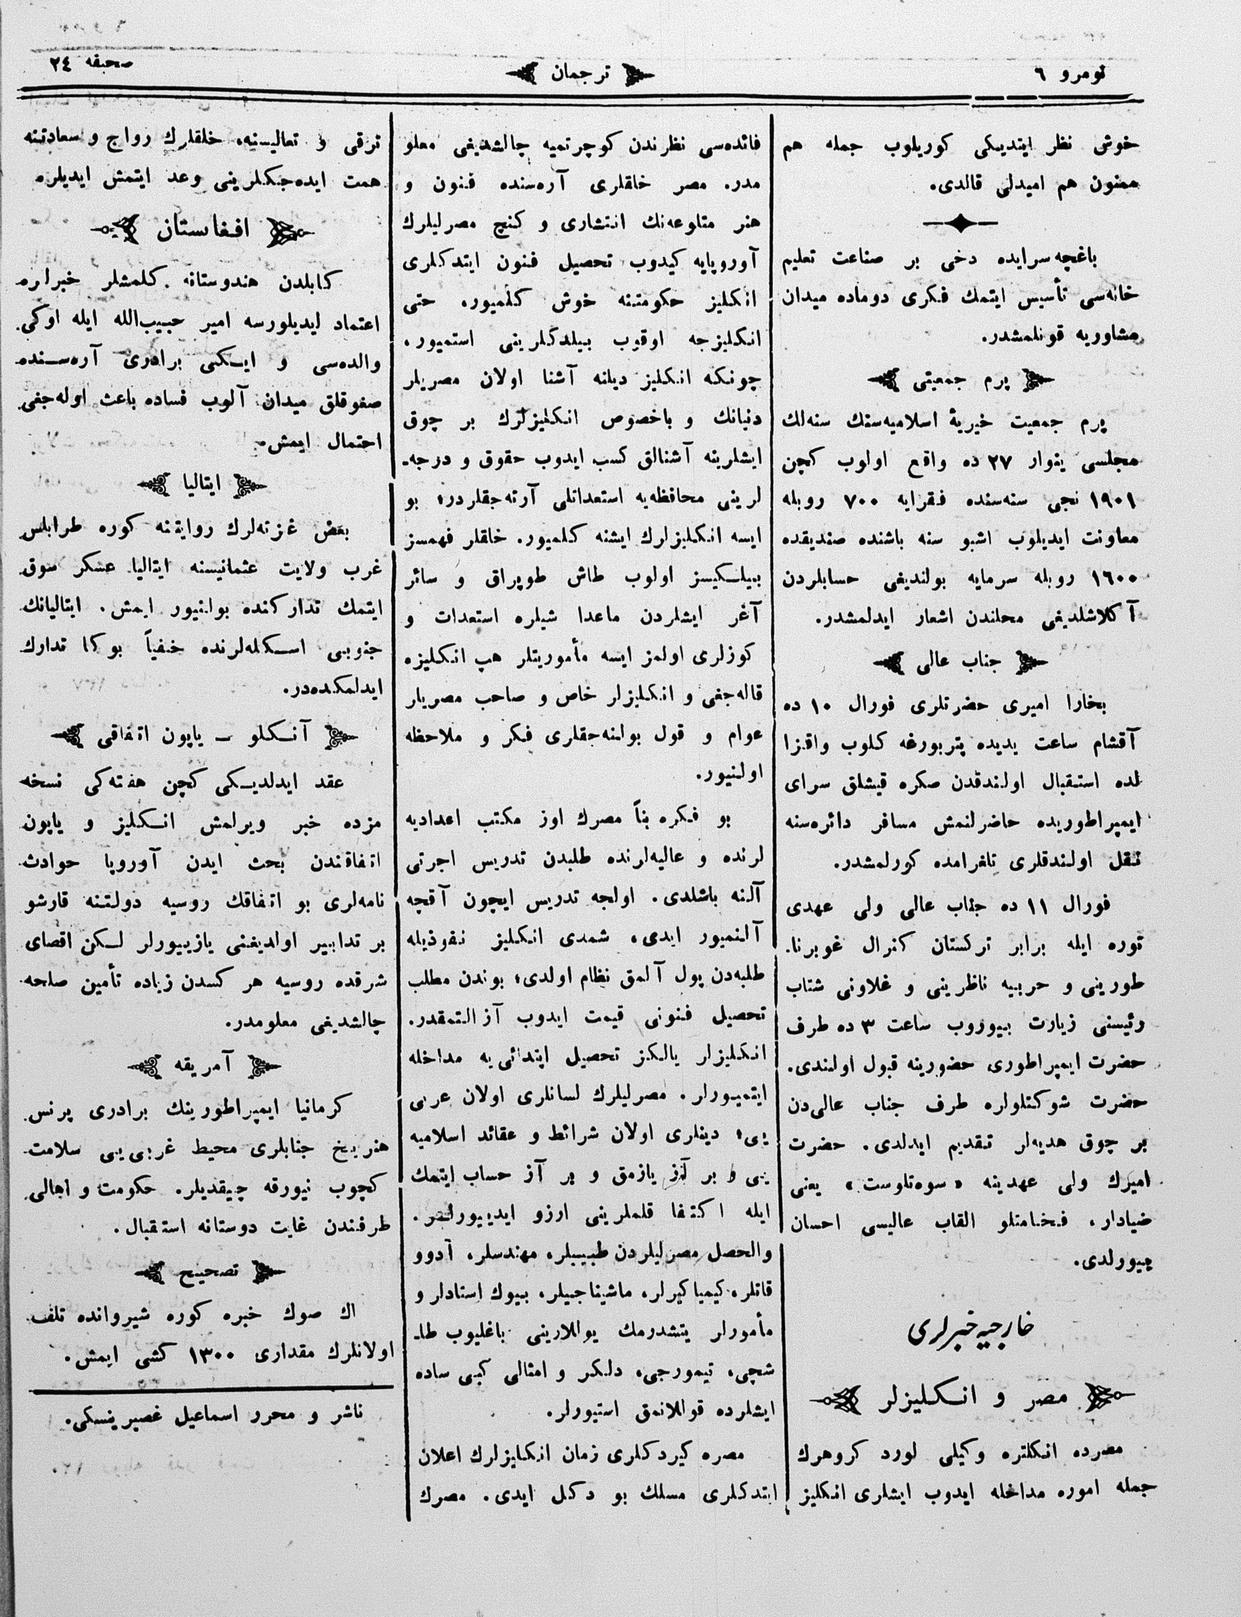 نومرو ٦
ترجمان
صحيفه ٢٤
خوش نظر ايتديكى كوريلوب جمله هم
ممنون هم اميدلى قالدى.
باغچه‌سرايده دخى بر صناعت تعليم
خانه‌سى تأسيس ايتمك فكرى دوماده ميدان
مشاوريه قونلمشدر.
پرم جمعيتى
پرم جمعيت خيريهٔ اسلاميه‌سنك سنه‌لك
مجلسى ينوار ٢٧ ده واقع اولوب كچن
١٩٠١ نجى سنه‌سنده فقرايه ٧٠٠ روبله
معاونت ايديلوب اشبو سنه باشنده صنديقده
١٦٠٠ روبله سرمايه بولنديغى حسابلردن
آكلاشلديغى محلندن اشعار ايدلمشدر.
جناب عالى
بخارا اميرى حضرتلرى فورال ١٠ ده
آقشام ساعت يديده پتربورغه كلوب واقزا
لده استقبال اولندقدن صكره قيشلق سراى
ايمپراطوريده حاضرلنمش مسافر دائره‌سنه
نقل اولندقلرى تلغرامده كورلمشدر.
فورال ١١ ده جناب عالى ولى عهدى
توره ايله برابر تركستان كنرال غوبرنا۔
طورينى و حربيه ناظرينى و غلاونى شتاب
رئيسنى زيارت بيوروب ساعت ٣ ده طرف
حضرت ايمپراطورى حضورينه قبول اولندى.
حضرت شوكتلولره طرف جناب عالى‌دن
بر چوق هديه‌لر تقديم ايدلدى. حضرت
اميرك ولى عهدينه «سوه‌تلوست» يعنى
ضيادار، فخامتلو القاب عاليسى احسان
بيوورلدى.
خارجيه خبرلرى
مصر و انكليزلر
مصرده انكلتره وكيلى لورد كروهرك
جمله اموره مداخله ايدوب ايشلرى انكليز
فائده‌سى نظرندن كوچرتميه چالشديغى معلو
مدر. مصر خلقلرى آره‌سنده فنون و
هنر متلوعه‌نك انتشارى و كنج مصرليلرك
آوروپايه كيدوب تحصيل فنون ايتدكلرى
انكليز حكومتنه خوش كلميور، حتى
انكليزجه اوقيوب بيلدكلرينى استميور،
چونكه انكليز ديلنه آشنا اولان مصريلر
دنيانك و باخصوص انكليزلرك بر چوق
ايشلرينه آشنالق كسب ايدوب حقوق و درجه۔
لرينى محافظه‌يه استعدادلى آرته‌جقلردر؛ بو
ايسه انكليزلرك ايشنه كلميور. خلقلر فهمسز
بيلكيسز اولوب طاش طوپراق و سائر
آغر ايشلردن ماعدا شيلره استعدات و
كوزلرى اولمز ايسه مأموريتلر هپ انكليزه
قاله‌جغى و انكليزلر خاص و صاحب مصريلر
عوام و قول بولنه‌جقلرى فكر و ملاحظه
اولنيور.
بو فكره بناً مصرك اوز مكتب اعداديه
لرنده و عاليه‌لرنده طلبدن تدريس اجرتى
آلنه باشلدى. اولجه تدريس ايچون آقچه
آلنميور ايدى، شمدى انكليز نفوذيله
طلبه‌دن پول آلمق نظام اولدى؛ بوندن مطلب
تحصيل فنونى قيمت ايدوب آزالتمقدر.
انكليزلر يالكز تحصيل ابتدائى‌يه مداخله
ايتميورلر. مصرليلرك لسانلرى اولان عربى
يى؛ دينلرى اولان شرائط و عقائد اسلاميه
يى و بر آز يازمق و بر آز حساب ايتمك
ايله اكتفا قلملرينى ارزو ايدييورلر.
والحصل مصرليلردن طبيبلر، مهندسلر، آدوو
قاتلر، كيمياكيرلر، ماشيناجيلر، بيوك استادلر و
مأمورلر يتشدرمك يوللارينى باغليوب طا۔
شجى، تيمورجى، دلكر و امثالى كبى ساده
ايشلرده قوللانمق استيورلر.
مصره كيردكلرى زمان انكليزلرك اعلان
ايتدكلرى مسلك بو دكل ايدى. مصرك
ترقى و تعاليسنه، خلقلرك رواج و سعادتنه
همت ايده‌جكلرينى وعد ايتمش ايديلر.
افغانستان
كابلدن هندوستانه كلمشلر خبرلره
اعتماد ايديلورسه امير حبيب‌الله ايله اوكى
والده‌سى و ايكى برادرى آره‌سنده
صغوقلق ميدان آلوب فساده باعث اوله‌جغى
احتمال ايمش.
ايتاليا
بعض غزته‌لرك روايتنه كوره طرابلس
غرب ولايت عثمانيسنه ايتاليا عسكر سوق
ايتمك تداركنده بولنيور ايمش. ايتاليانك
جنوبى اسكله‌لرنده خفياً بوكا تدارك
ايدلمكده‌در.
آنكلو ــ ياپون اتفاقى
عقد ايدلديكى كچن هفته‌كى نسخه
مزده خبر ويرلمش انكليز و ياپون
اتفاقندن بحث ايدن آوروپا حوادث
نامه‌لرى بو اتفاقك روسيه دولتنه قارشو
بر تدابير اولديغنى يازييورلر لكن اقصاى
شرقده روسيه هر كسدن زياده تأمين صلحه
چالشديغى معلومدر.
آمريقه
كرمانيا ايمپراطورينك برادرى پرنس
هنريخ جنابلرى محيط غربى‌يى سلامت
كچوب نيورقه چيقديلر. حكومت و اهالى
طرفندن غايت دوستانه استقبال.
تصحيح
اك صوك خبره كوره شيروانده تلف
اولانلرك مقدارى ١٣٠٠ كشى ايمش.
ناشر و محرر اسماعيل غصپرينسكى.